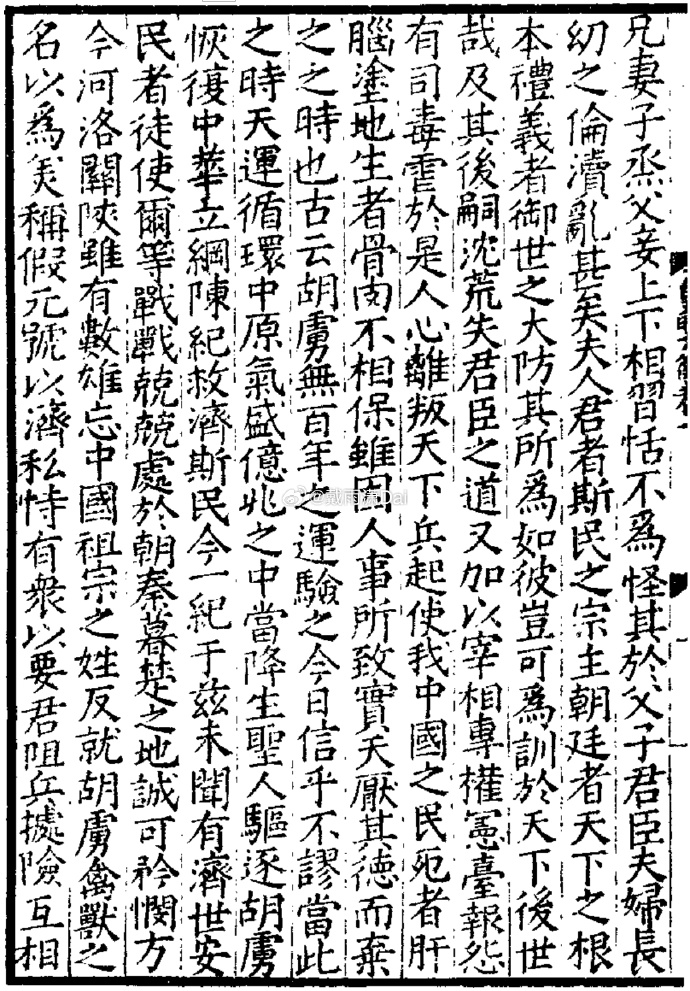 兄妻子烝父妾上下相習恬不爲怪其於父子君臣夫婦長
幼之倫瀆亂甚矣夫人君者斯民之宗主朝廷者天下之根
本禮義者御世之大防其所爲如彼豈可爲訓於天下後世
哉及其後嗣沈荒失君臣之道又加以宰相專權憲臺報怨
有司毒虐於是人心離叛天下兵起使我中國之民死者肝
腦塗地生者骨肉不相保雖因人事所致實天厭其德而棄
之之時也古云胡虜無百年之運驗之今日信乎不謬當此
之時天運循環中原氣盛億兆之中當降生聖人驅逐胡虜
恢復中華立綱陳紀救濟斯民今一紀于兹未聞有濟世安
民者徒使爾等戰戰兢兢處於朝秦暮楚之地誠可矜憫方
今河洛關陝雖有數雄忘中國祖宗之姓反就胡虜禽獸之
名以爲美稱假元號以濟私恃有衆以要君阻兵據險互相
@戴雨潇Dai